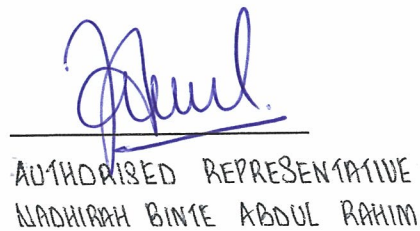 AUTHORISED REPRESENTATIVE
NADHIRAH BINTE ABDUL RAHIM